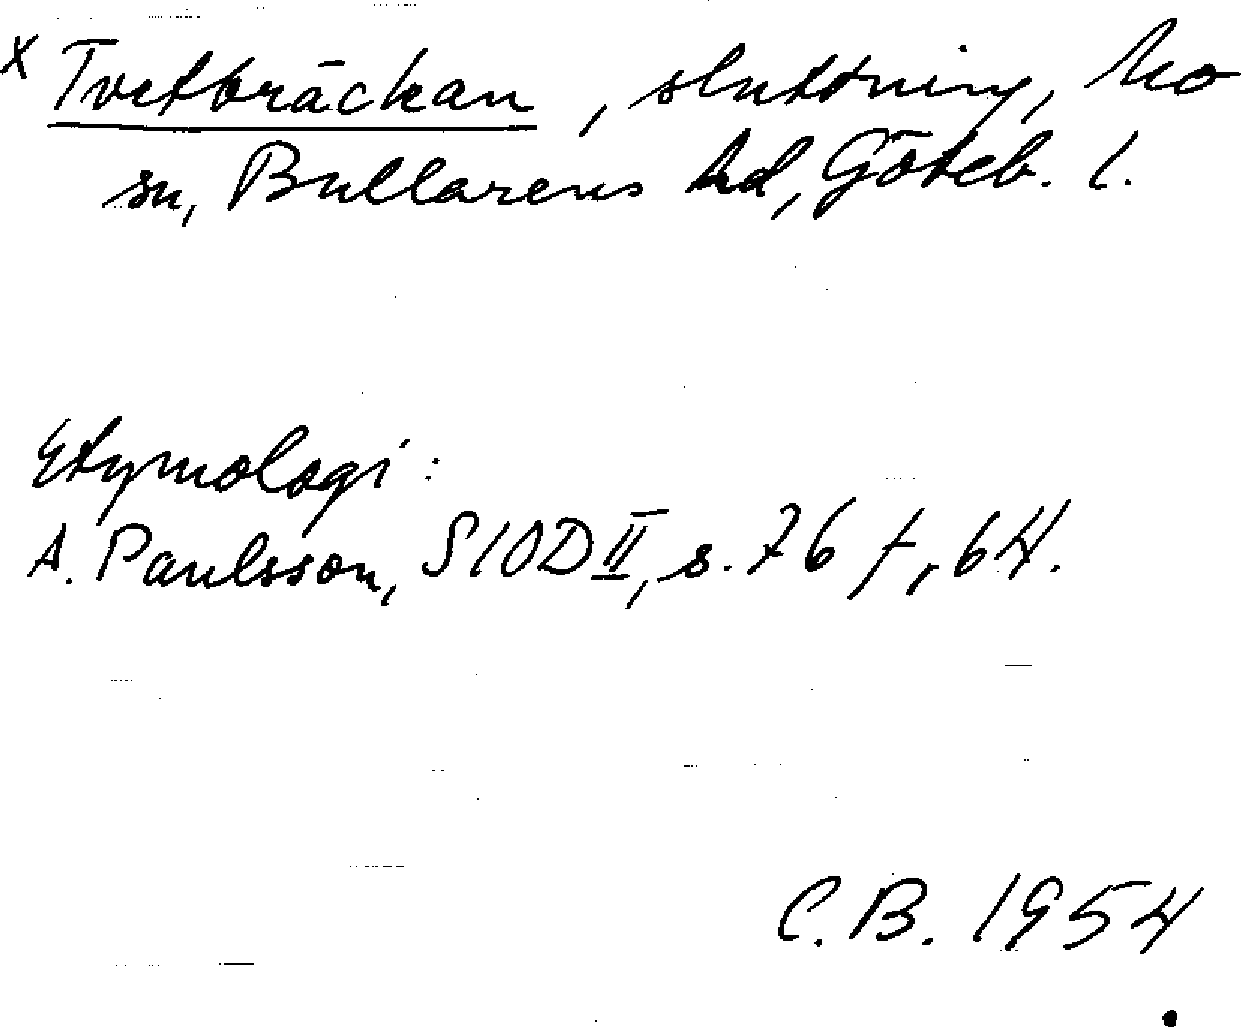 x Tvetbräckan, sluttning, Mo
sn, Bullarens hd, Göteb. l.
Etymologi:
A. Paulsson, SIOD II, s. 76 f, 64.
C. B. 1954